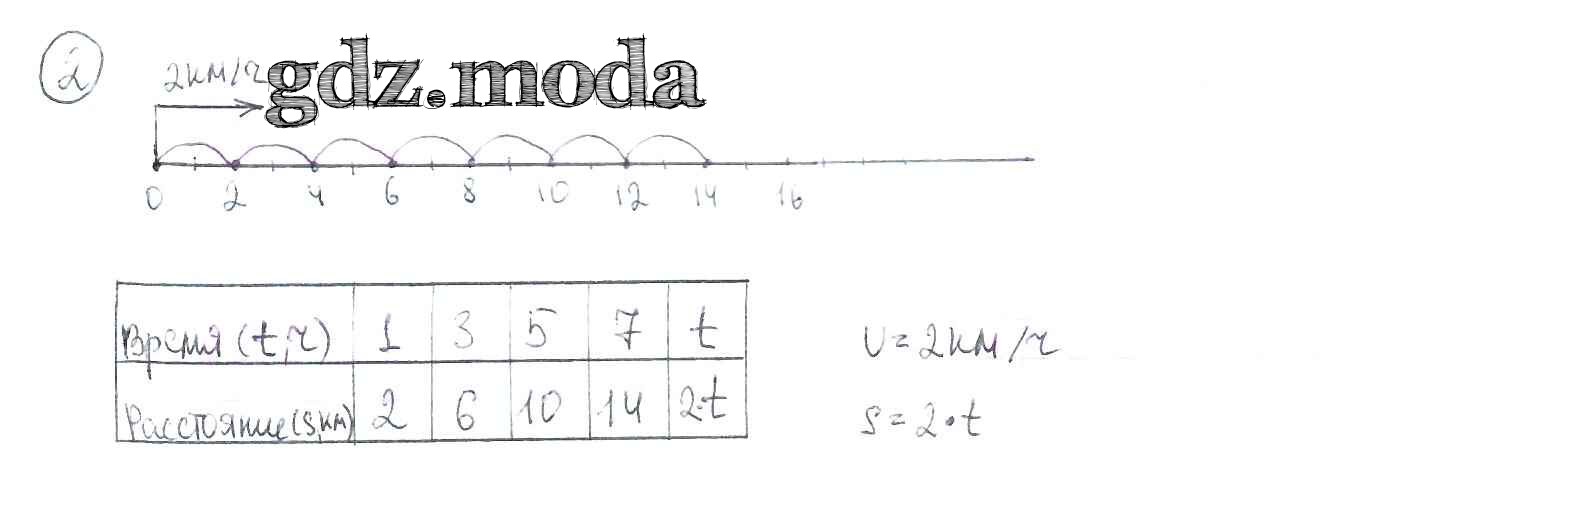 2
2км/ч
gdz.moda
0 2 4 6 8 10 12 14 16
Время (t, ч) 1 3 5 7 t
Расстояние (s, км) 2 6 10 14 2·t
v = 2км/ч
s = 2·t